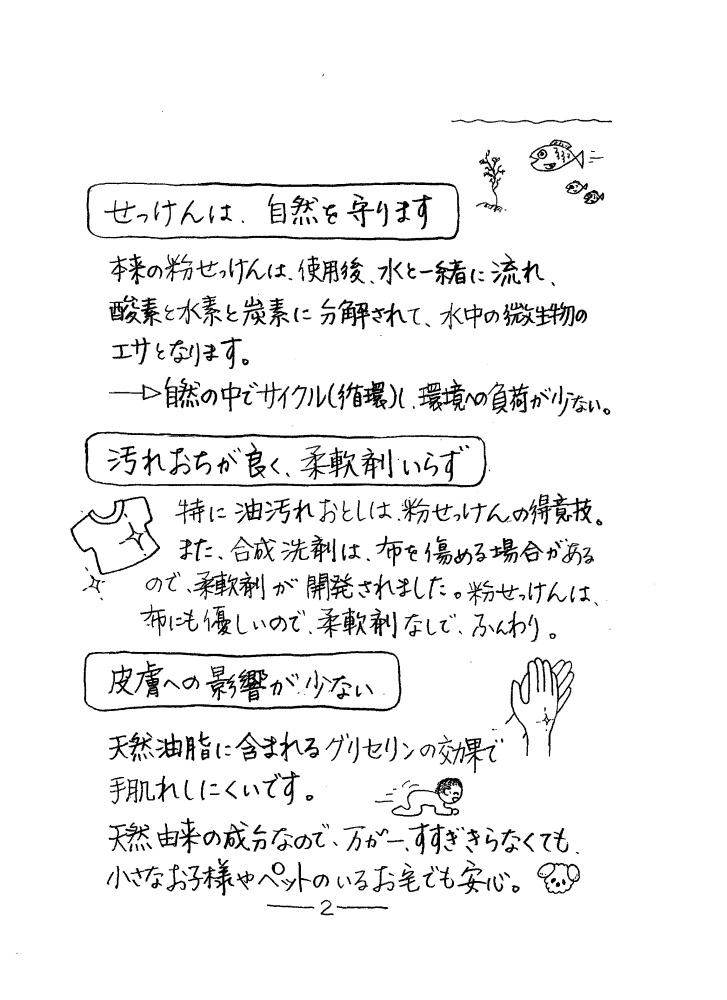 せっけんは、自然を守ります
本来の粉せっけんは、使用後、水と一緒に流れ、
酸素と水素と炭素に分解されて、水中の微生物の
エサとなります。
→自然の中でサイクル(循環)し、環境への負荷が少ない。
汚れおちが良く、柔軟剤いらず
特に油汚れおとしは、粉せっけんの得意技。
また、合成洗剤は、布を傷める場合がある
ので、柔軟剤が開発されました。粉せっけんは、
布にも優しいので、柔軟剤なしで、ふんわり。
皮膚への影響が少ない
天然油脂に含まれるグリセリンの効果で
手肌れしにくいです。
天然由来の成分なので、万が一、すすぎきらなくても、
小さなお子様やペットのいるお宅でも安心。
2